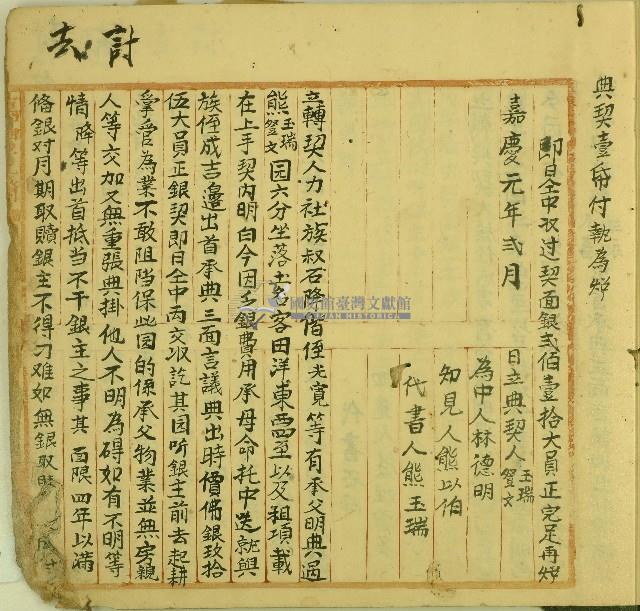 典契壹紙付執為炤
即日仝中收过契面銀弍佰壹拾大員正完足再炤
嘉慶元年弍月 日立典契人玉瑞登文
為中人林德明
知見人熊以伯
代書人熊玉瑞
立轉契人力社族叔石降偕侄光寛等有承父明典过
熊玉瑞登文园六分坐落土名客田洋東西四至以及租項載
在上手契內明白今因乏銀費用承母命托中送就與
族侄成吉邊出首承典三面言議典出時價佛銀玖拾
伍大員正銀契即日仝中両交收訖其园听銀主前去起耕
掌管為業不敢阻挡保此园的係承父物業並無房親
人等交加又無重張典掛他人不明為碍如有不明等
情降等出首抵当不干銀主之事其 面限四年以滿
俻銀对月期取贖銀主不得刁难如無銀取贖
計
國史館臺灣文獻館
TAIWAN HISTORICA